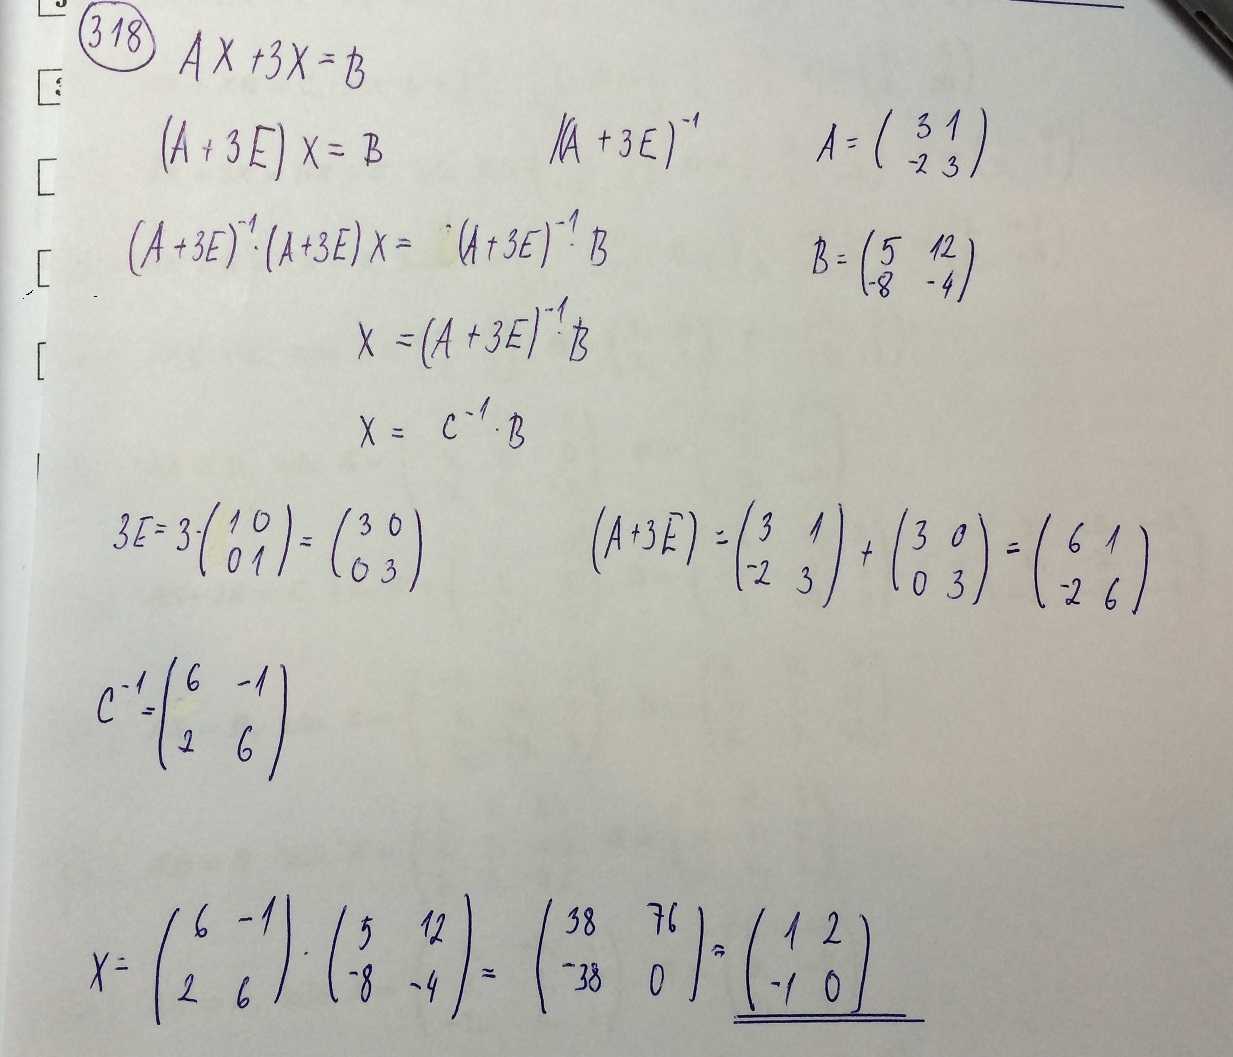 318
AX + 3X = B
(A + 3E) X = B /(A + 3E)⁻¹ A = ( 3 1
-2 3 )
(A + 3E)⁻¹ · (A + 3E) X = (A + 3E)⁻¹ · B B = ( 5 12
-8 -4 )
X = (A + 3E)⁻¹ · B
X = C⁻¹ · B
3E = 3 · ( 1 0
0 1 ) = ( 3 0
0 3 ) (A + 3E) = ( 3 1
-2 3 ) + ( 3 0
0 3 ) = ( 6 1
-2 6 )
C⁻¹ = ( 6 -1
2 6 )
X = ( 6 -1
2 6 ) · ( 5 12
-8 -4 ) = ( 38 76
-38 0 ) = ( 1 2
-1 0 )